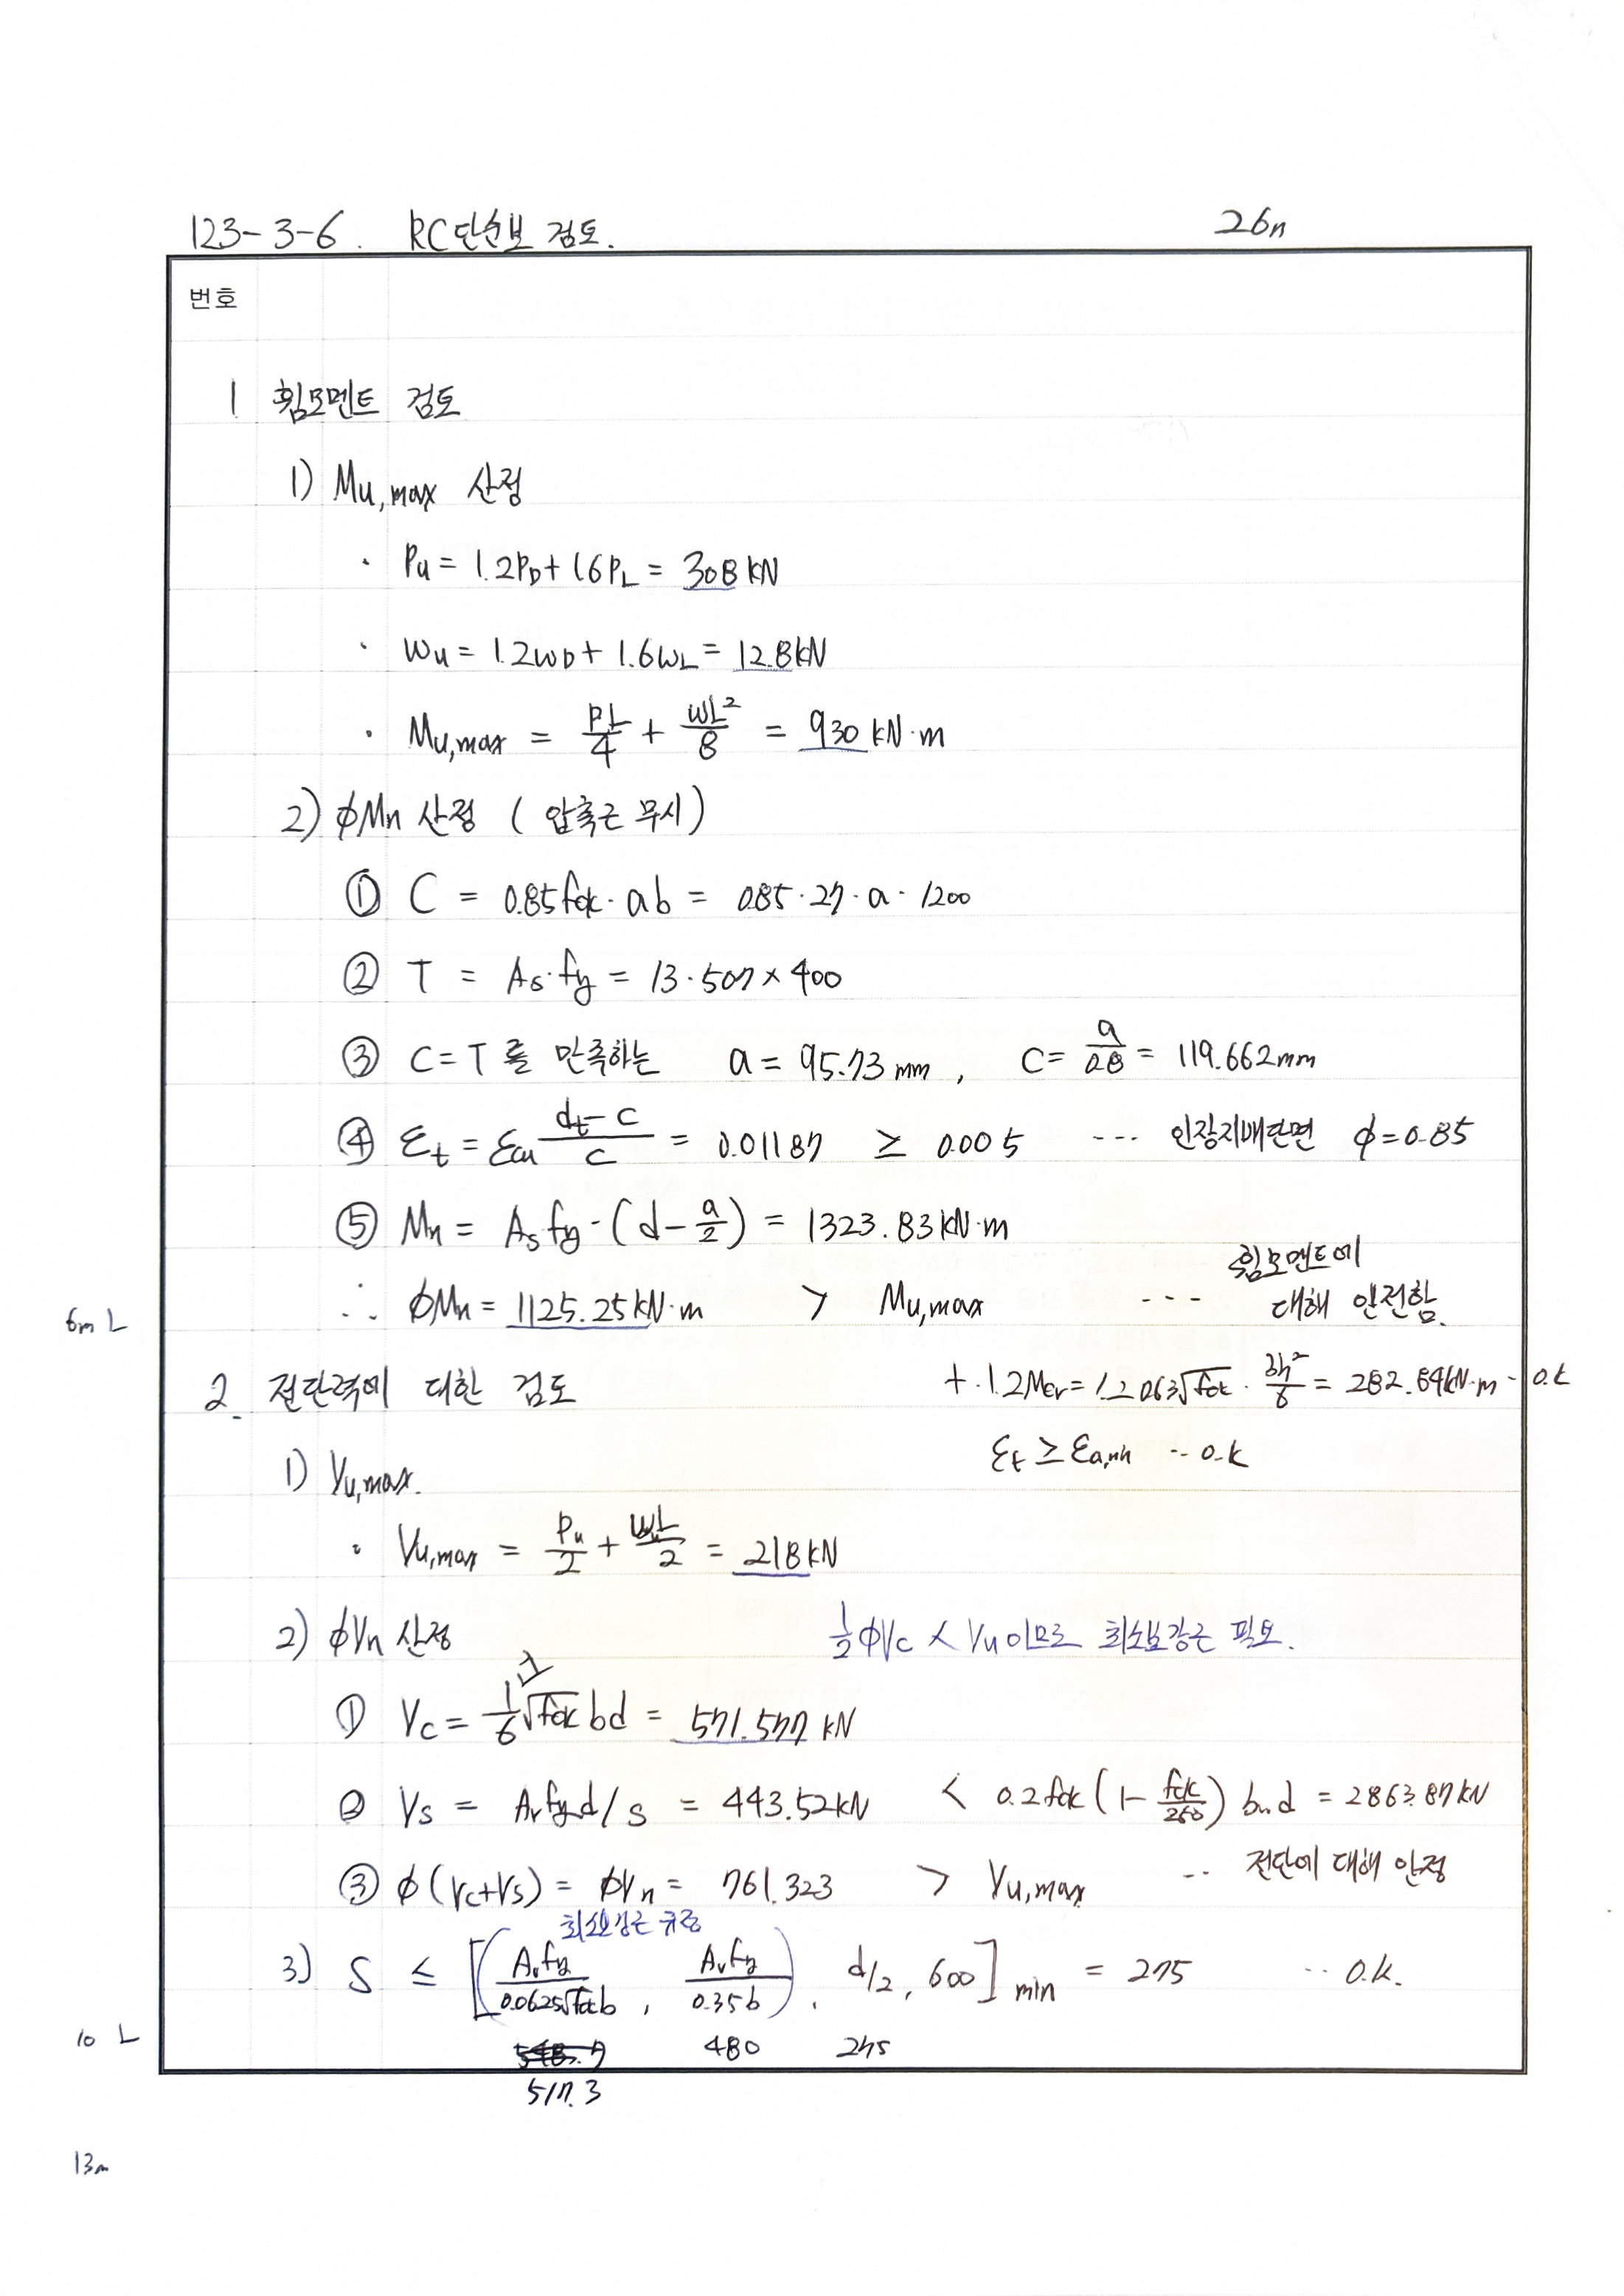 123-3-6. RC단순보 검토. 26n
번호
1 휨모멘트 검토
1) Mu,max 산정
· Pu = 1.2PD + 1.6PL = 308 kN
· wu = 1.2wD + 1.6wL = 12.8kN
· Mu,max = PL/4 + wL²/8 = 930 kN·m
2) ϕMn 산정 ( 압축근 무시 )
① C = 0.85fck · ab = 0.85 · 27 · a · 1200
② T = As·fy = 13·507 × 400
③ C = T 를 만족하는 a = 95.73 mm , c = a/0.8 = 119.662mm
④ εt = εcu (dt - c)/c = 0.01187 ≥ 0.005 --- 인장지배단면 ϕ = 0.85
⑤ Mn = As fy · (d - a/2) = 1323.83kN·m
∴ ϕMn = 1125.25kN·m > Mu,max --- 휨모멘트에 대해 안전함.
6m L
2. 전단력에 대한 검토
+ · 1.2Mcr = 1.2 0.63√fck · bh²/6 = 282.84kN·m - o.k
εt ≥ εa,min -- o.k
1) Vu,max.
· Vu,max = Pu/2 + wuL/2 = 218 kN
2) ϕVn 산정 1/2 ϕVc < Vu 이므로 최소보강근 필요.
① Vc = 1/6 λ√fck bd = 571.577 kN
② Vs = Av fy d/s = 443.52kN < 0.2fck (1 - fck/250) bw d = 2863.87kN
③ ϕ(Vc+Vs) = ϕVn = 761.323 > Vu,max -- 전단에 대해 안정
최소보강근 규정
3) S ≤ [(Av fy/0.0625√fck b , Av fy/0.35b) , d/2 , 600] min = 275 -- o.k.
10 L
480 275
517.3
13m